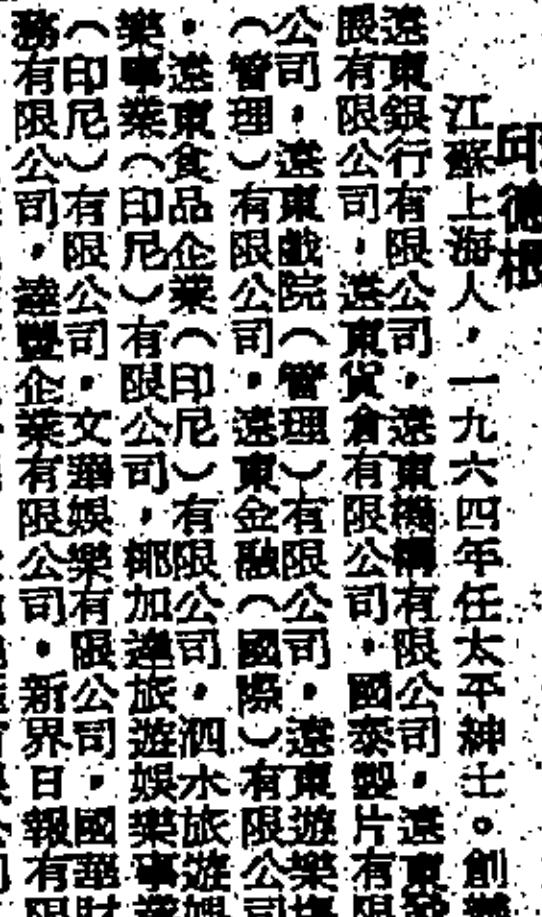 邱德根
江蘇上海人，一九六四年任太平紳士。創辦
遠東銀行有限公司，遠東機構有限公司，遠東發
展有限公司，遠東貨倉有限公司，國泰製片有限
公司，遠東戲院（管理）有限公司，遠東遊樂場
（管理）有限公司，遠東金融（國際）有限公司
，遠東食品企業（印尼）有限公司，泗水旅遊娛
樂事業（印尼）有限公司，椰加達旅遊娛樂事業
（印尼）有限公司，文華娛樂有限公司，國華財
務有限公司，達豐企業有限公司，新界日報有限